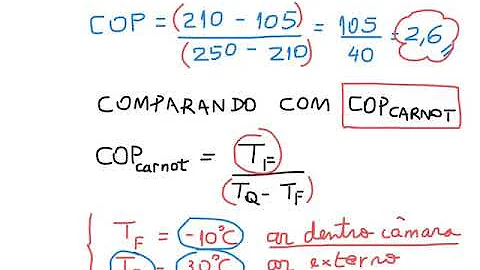 COP = (210 - 105) / (250 - 210) = 105 / 40 = 2,6
COMPARANDO COM COP CARNOT
COP carnot = TF / (TQ - TF)
TF = -10°C ar dentro câmara
TQ = 30°C ar externo